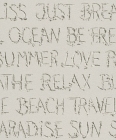 LISS JUST BREA
L OCEAN BE FRE
SUMMER LOVE P
ATHE RELAX BL
E BEACH TRAVEL
PARADISE SUN S